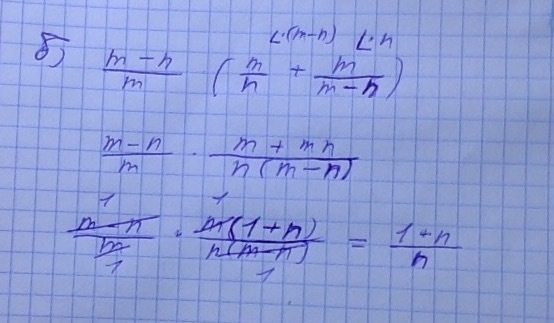 б) (m - n)/m · (m/n + m/(m - n)) ∠·(m-n) ∠·n
(m - n)/m · (m + mn)/(n(m - n))
(m - n)/m · m(1 + n)/(n(m - n)) = (1 + n)/n